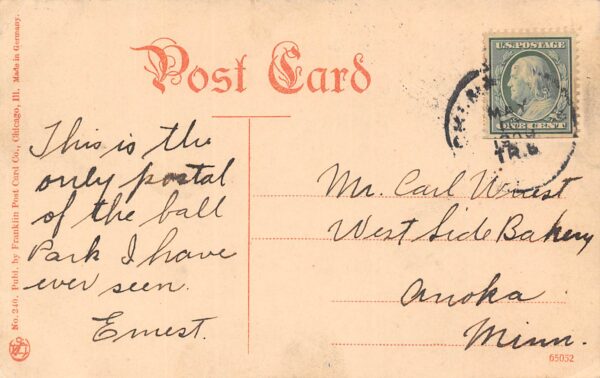 Post Card
U.S. POSTAGE
ONE CENT
This is the
only postal
of the ball
Park I have
ever seen.
Ernest.
Mr. Carl
West Side Bakery
Anoka
Minn.
65052
No. 240. Publ. by Franklin Post Card Co., Chicago, Ill. Made in Germany.